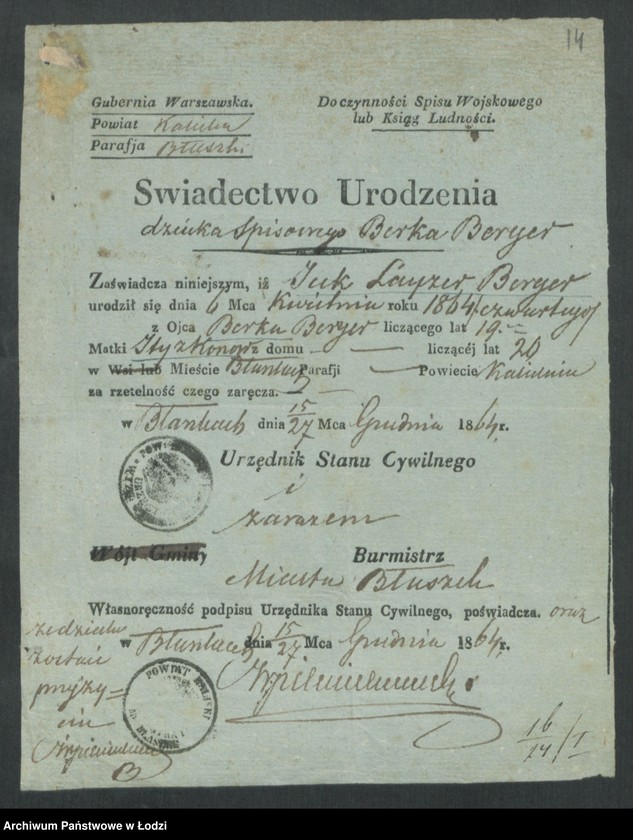 14
Gubernia Warszawska.
Do czynności Spisu Wojskowego
Powiat Kaliski
lub Ksiąg Ludności.
Parafja Błaszki
Swiadectwo Urodzenia
dziecka Spisowego Berka Berger
Zaświadcza niniejszym, iż Icek Layzer Berger
urodził się dnia 6 Mca Kwietnia roku 1864/czwartego/
z Ojca Berka Berger liczącego lat 19.
Matki Ity z domu liczącéj lat 20
w Wsi lub Mieście Błaszkach Parafji Powiecie Kaliskim
za rzetelność czego zaręcza.
w Błaszkach dnia 15/27 Mca Grudnia 1864 r.
Urzędnik Stanu Cywilnego
i
zarazem
Wójt Gminy Burmistrz
Miasta Błaszek
Własnoręczność podpisu Urzędnika Stanu Cywilnego, poświadcza. oraz
w Błaszkach dnia 15/27 Mca Grudnia 1864 r.
POWIAT KALISKI
16/14 / 1
Archiwum Państwowe w Łodzi